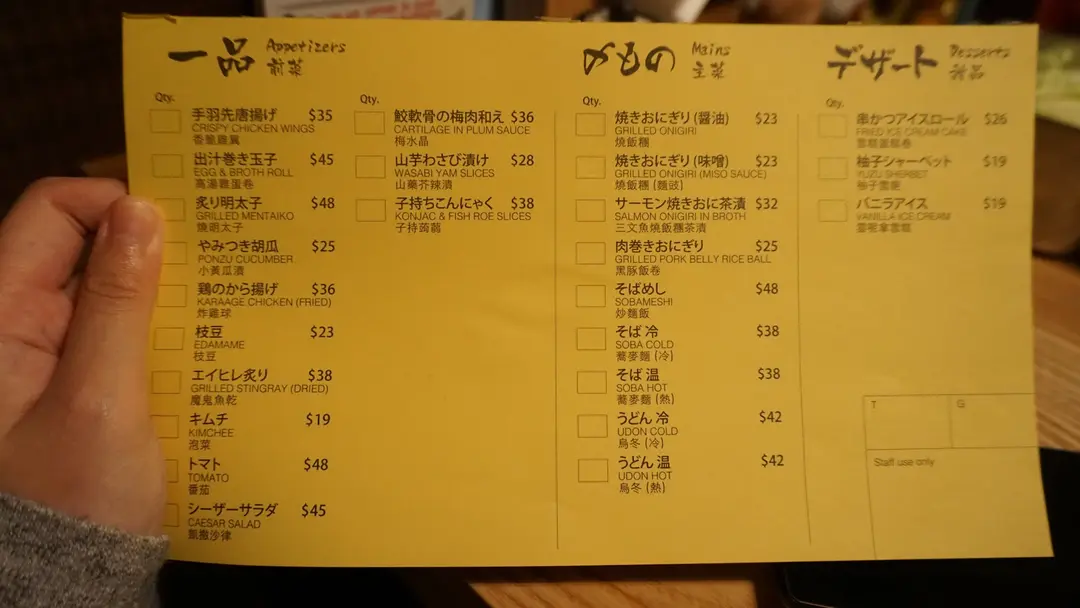 一品 Appetizers
前菜
Qty.
手羽先唐揚げ $35
CRISPY CHICKEN WINGS
香脆雞翼
出汁巻き玉子 $45
EGG & BROTH ROLL
高湯雞蛋卷
炙り明太子 $48
GRILLED MENTAIKO
燒明太子
やみつき胡瓜 $25
PONZU CUCUMBER
小黃瓜漬
鶏のから揚げ $36
KARAAGE CHICKEN (FRIED)
炸雞球
枝豆 $23
EDAMAME
枝豆
エイヒレ炙り $38
GRILLED STINGRAY (DRIED)
魔鬼魚乾
キムチ $19
KIMCHEE
泡菜
トマト $48
TOMATO
番茄
シーザーサラダ $45
CAESAR SALAD
凱撒沙律
Qty.
鮫軟骨の梅肉和え $36
CARTILAGE IN PLUM SAUCE
梅水晶
山芋わさび漬け $28
WASABI YAM SLICES
山藥芥辣漬
子持ちこんにゃく $38
KONJAC & FISH ROE SLICES
子持蒟蒻
〆もの Mains
主菜
Qty.
焼きおにぎり (醤油) $23
GRILLED ONIGIRI
燒飯糰
焼きおにぎり (味噌) $23
GRILLED ONIGIRI (MISO SAUCE)
燒飯糰 (麵豉)
サーモン焼きおに茶漬 $32
SALMON ONIGIRI IN BROTH
三文魚燒飯糰茶漬
肉巻きおにぎり $25
GRILLED PORK BELLY RICE BALL
黑豚飯卷
そばめし $48
SOBAMESHI
炒麵飯
そば 冷 $38
SOBA COLD
蕎麥麵 (冷)
そば 温 $38
SOBA HOT
蕎麥麵 (熱)
うどん 冷 $42
UDON COLD
烏冬 (冷)
うどん 温 $42
UDON HOT
烏冬 (熱)
デザート Desserts
甜品
Qty.
串かつアイスロール $26
FRIED ICE CREAM CAKE
雪糕蛋糕卷
柚子シャーベット $19
YUZU SHERBET
柚子雪葩
バニラアイス $19
VANILLA ICE CREAM
雲呢拿雪糕
T
G
Staff use only